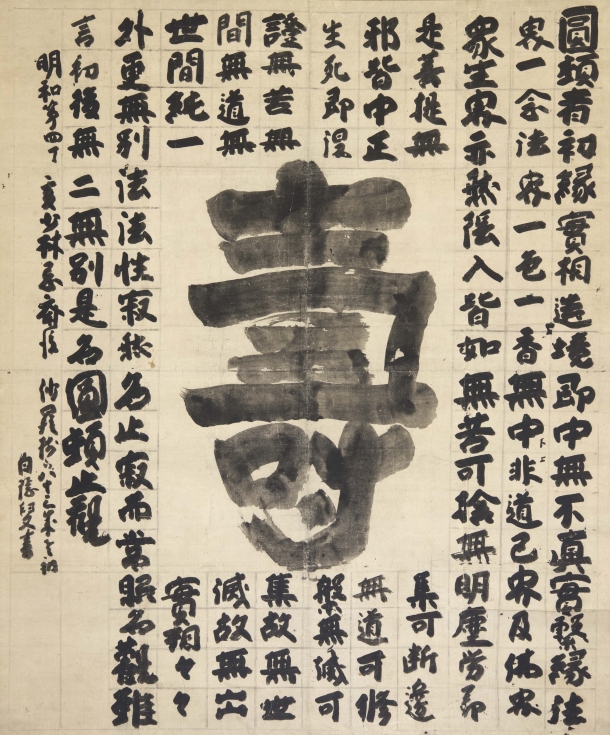 圓頓者初緣實相造境即中無不真實繫緣法
界一念法界一色一香無中非道己界及佛界
衆生界亦然陰入皆如無苦可捨無明塵労即
是菩提無
集可斷邊
邪皆中正
無道可修
生死即涅
槃無滅可
證無苦無
集故無世
間無道無
滅故無出
世間純一
實相々々
外更無別法法性寂然名止寂而常照名觀雖
言初後無二無別是名圓頓止觀
明和第四丁亥少林忌齋後 沙羅樹下八十三歲老衲
白隱叟書
壽